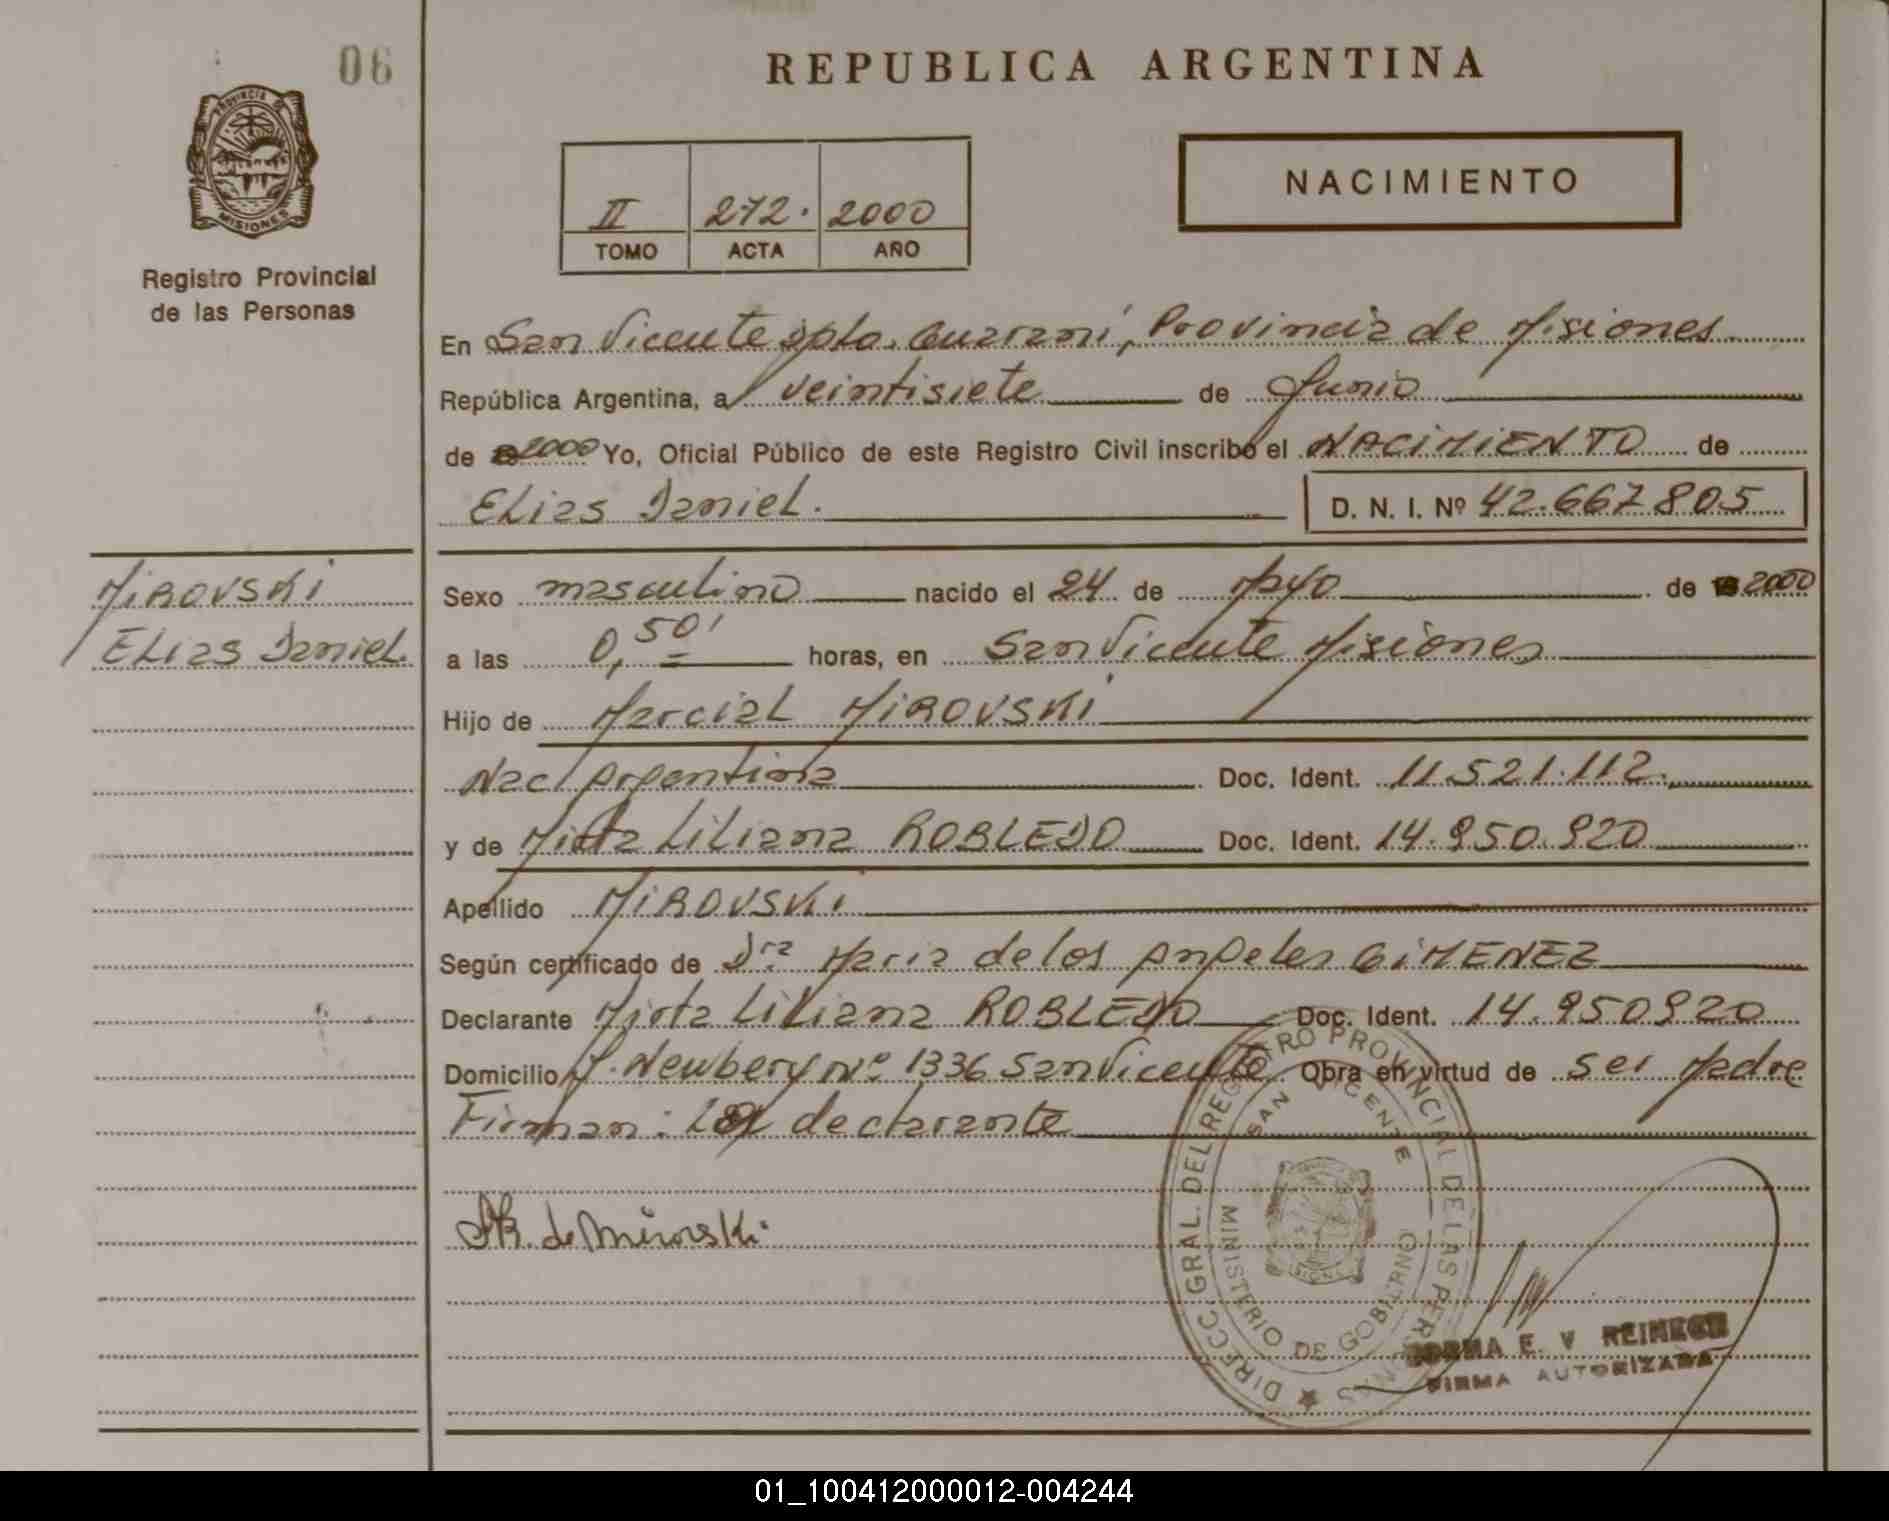 06
REPUBLICA ARGENTINA
PROVINCIA DE
MISIONES
Registro Provincial
de las Personas
II 272. 2000
TOMO ACTA AÑO
NACIMIENTO
En San Vicente Dpto. Guaraní, Provincia de Misiones
República Argentina, a veintisiete de Junio
de 2000 Yo, Oficial Público de este Registro Civil inscribo el NACIMIENTO de
Elias Daniel. D. N. I. Nº 42.667.805
MIROVSKI
Elias Daniel.
Sexo masculino nacido el 24 de Mayo de 2000
a las 0,50' horas, en San Vicente Misiones
Hijo de Marcial MIROVSKI
Nac. Argentina Doc. Ident. 11.521.112.
y de Mirta Liliana ROBLEDO Doc. Ident. 14.950.920
Apellido MIROVSKI
Según certificado de Dra Maria de los Angeles GIMENEZ
Declarante Mirta Liliana ROBLEDO Doc. Ident. 14.950920
Domicilio J. Newbery Nº 1336 San Vicente Obra en virtud de ser Madre
Firman: La declarante
de Mirovski
DIRECC. GRAL. DEL REGISTRO PROVINCIAL DE LAS PERSONAS
SAN VICENTE
MINISTERIO DE GOBIERNO
NORMA E. V
FIRMA AUTORIZADA
01_100412000012-004244